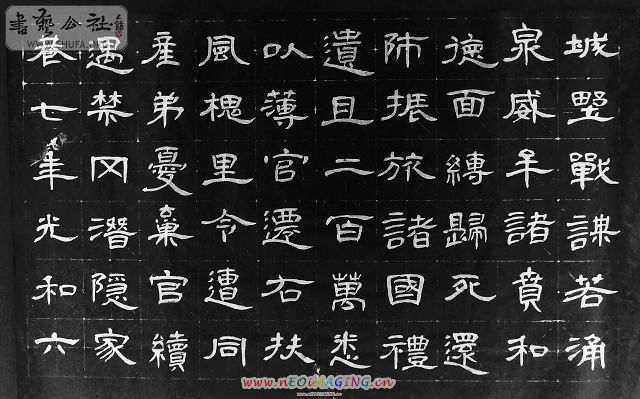 城壄戰謀若涌
泉威牟諸賁和
德面縛歸死還
師振旅諸國禮
遺且二百萬悉
以薄官遷右扶
風槐里令遭同
產弟憂棄官續
遇禁冈潛隱家
巷七年光和六
書藝公社
www.nEOiMAGiNG.cn